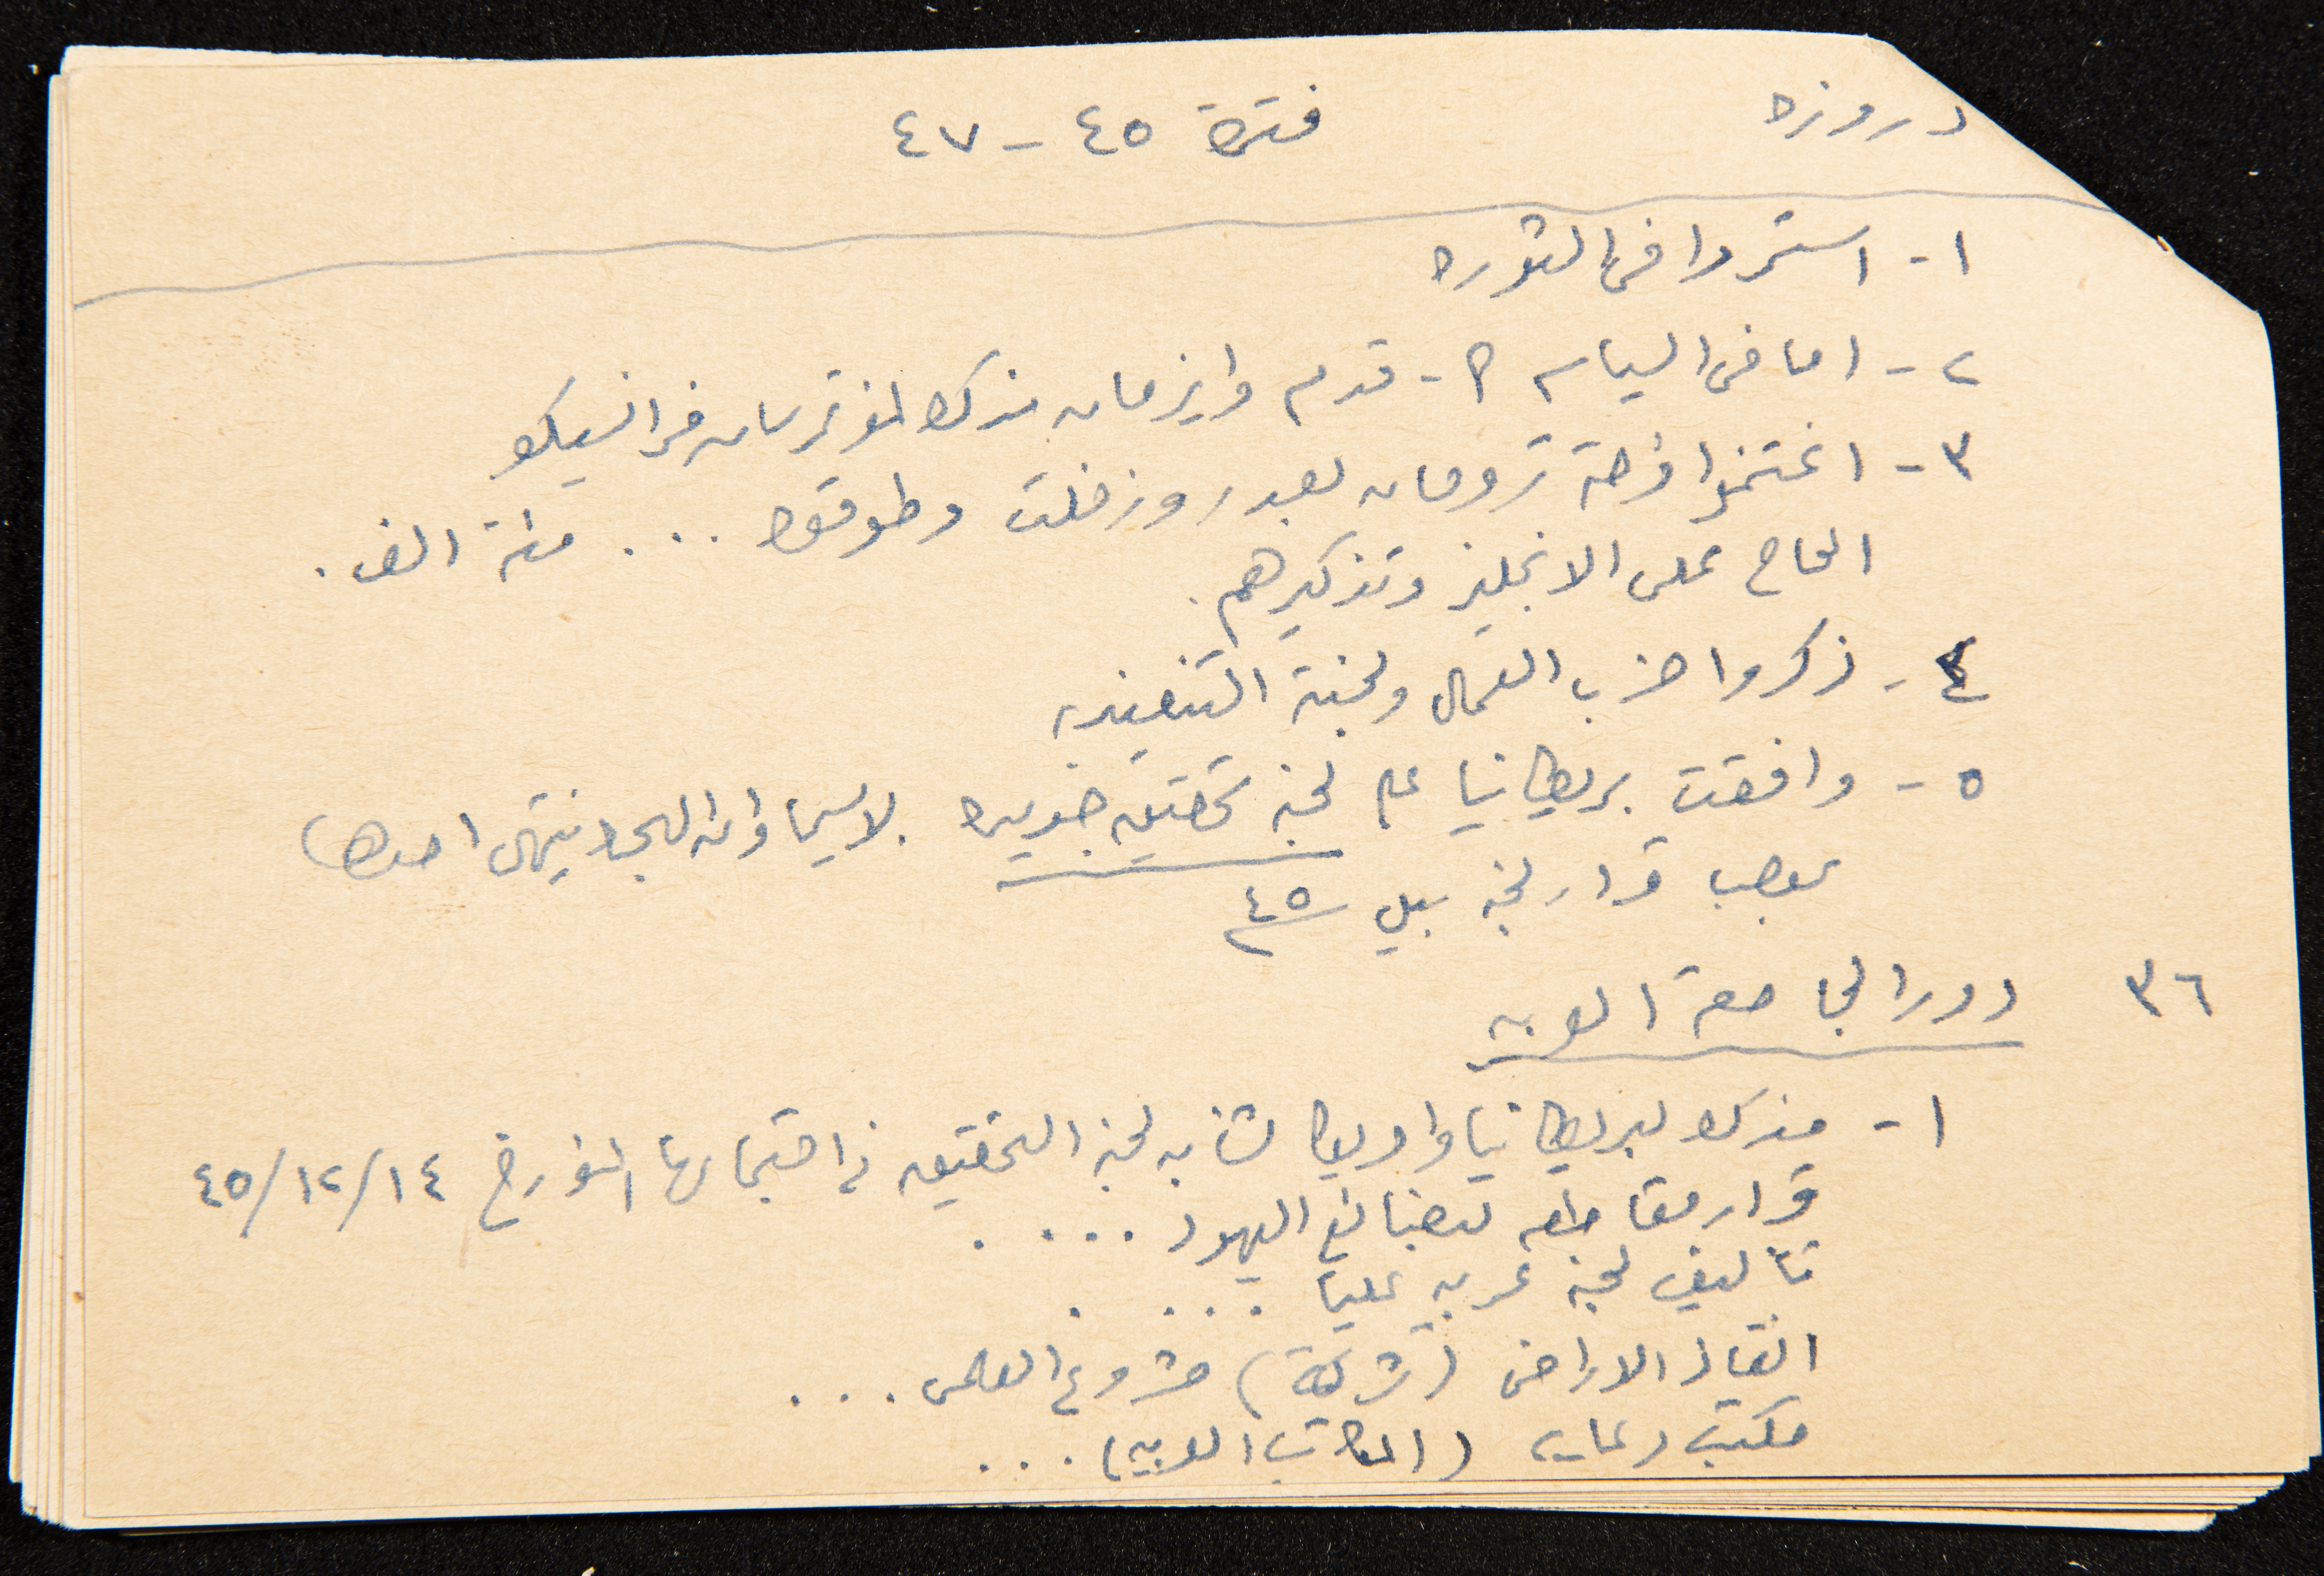 دروزه
فترة ٤٥ - ٤٧
١- استمروا في الثوره
٢- اما في السياسه - قدم وايزمان مذكره لمؤتمر سان فرانسيسكو
٣- اغتنموا فرصة ترومان بعد روزفلت وطوقوه ... مئة الف .
الحاح على الانجليز وتذكيرهم .
٤- ذكروا حزب العمال ولجنة التنفيذيه
٥- وافقت بريطانيا على لجنه تحقيق جديده لاسيما وان الهجره ينتهي احدها
بموجب قرار لجنه بيل ٤٥
٣٦ دور الجامعة العربيه
١- مذكره لبريطانيا وامريكا بشأن لجنه التحقيق في اجتماعها المؤرخ ١٤/١٢/٤٥
قرار مقاطعه لبضائع اليهود ....
تأليف لجنه عربيه عليا ....
انقاذ الاراضي (شركة) مشروع العلمي ...
مكتب دعايه (المكاتب العربيه) ...